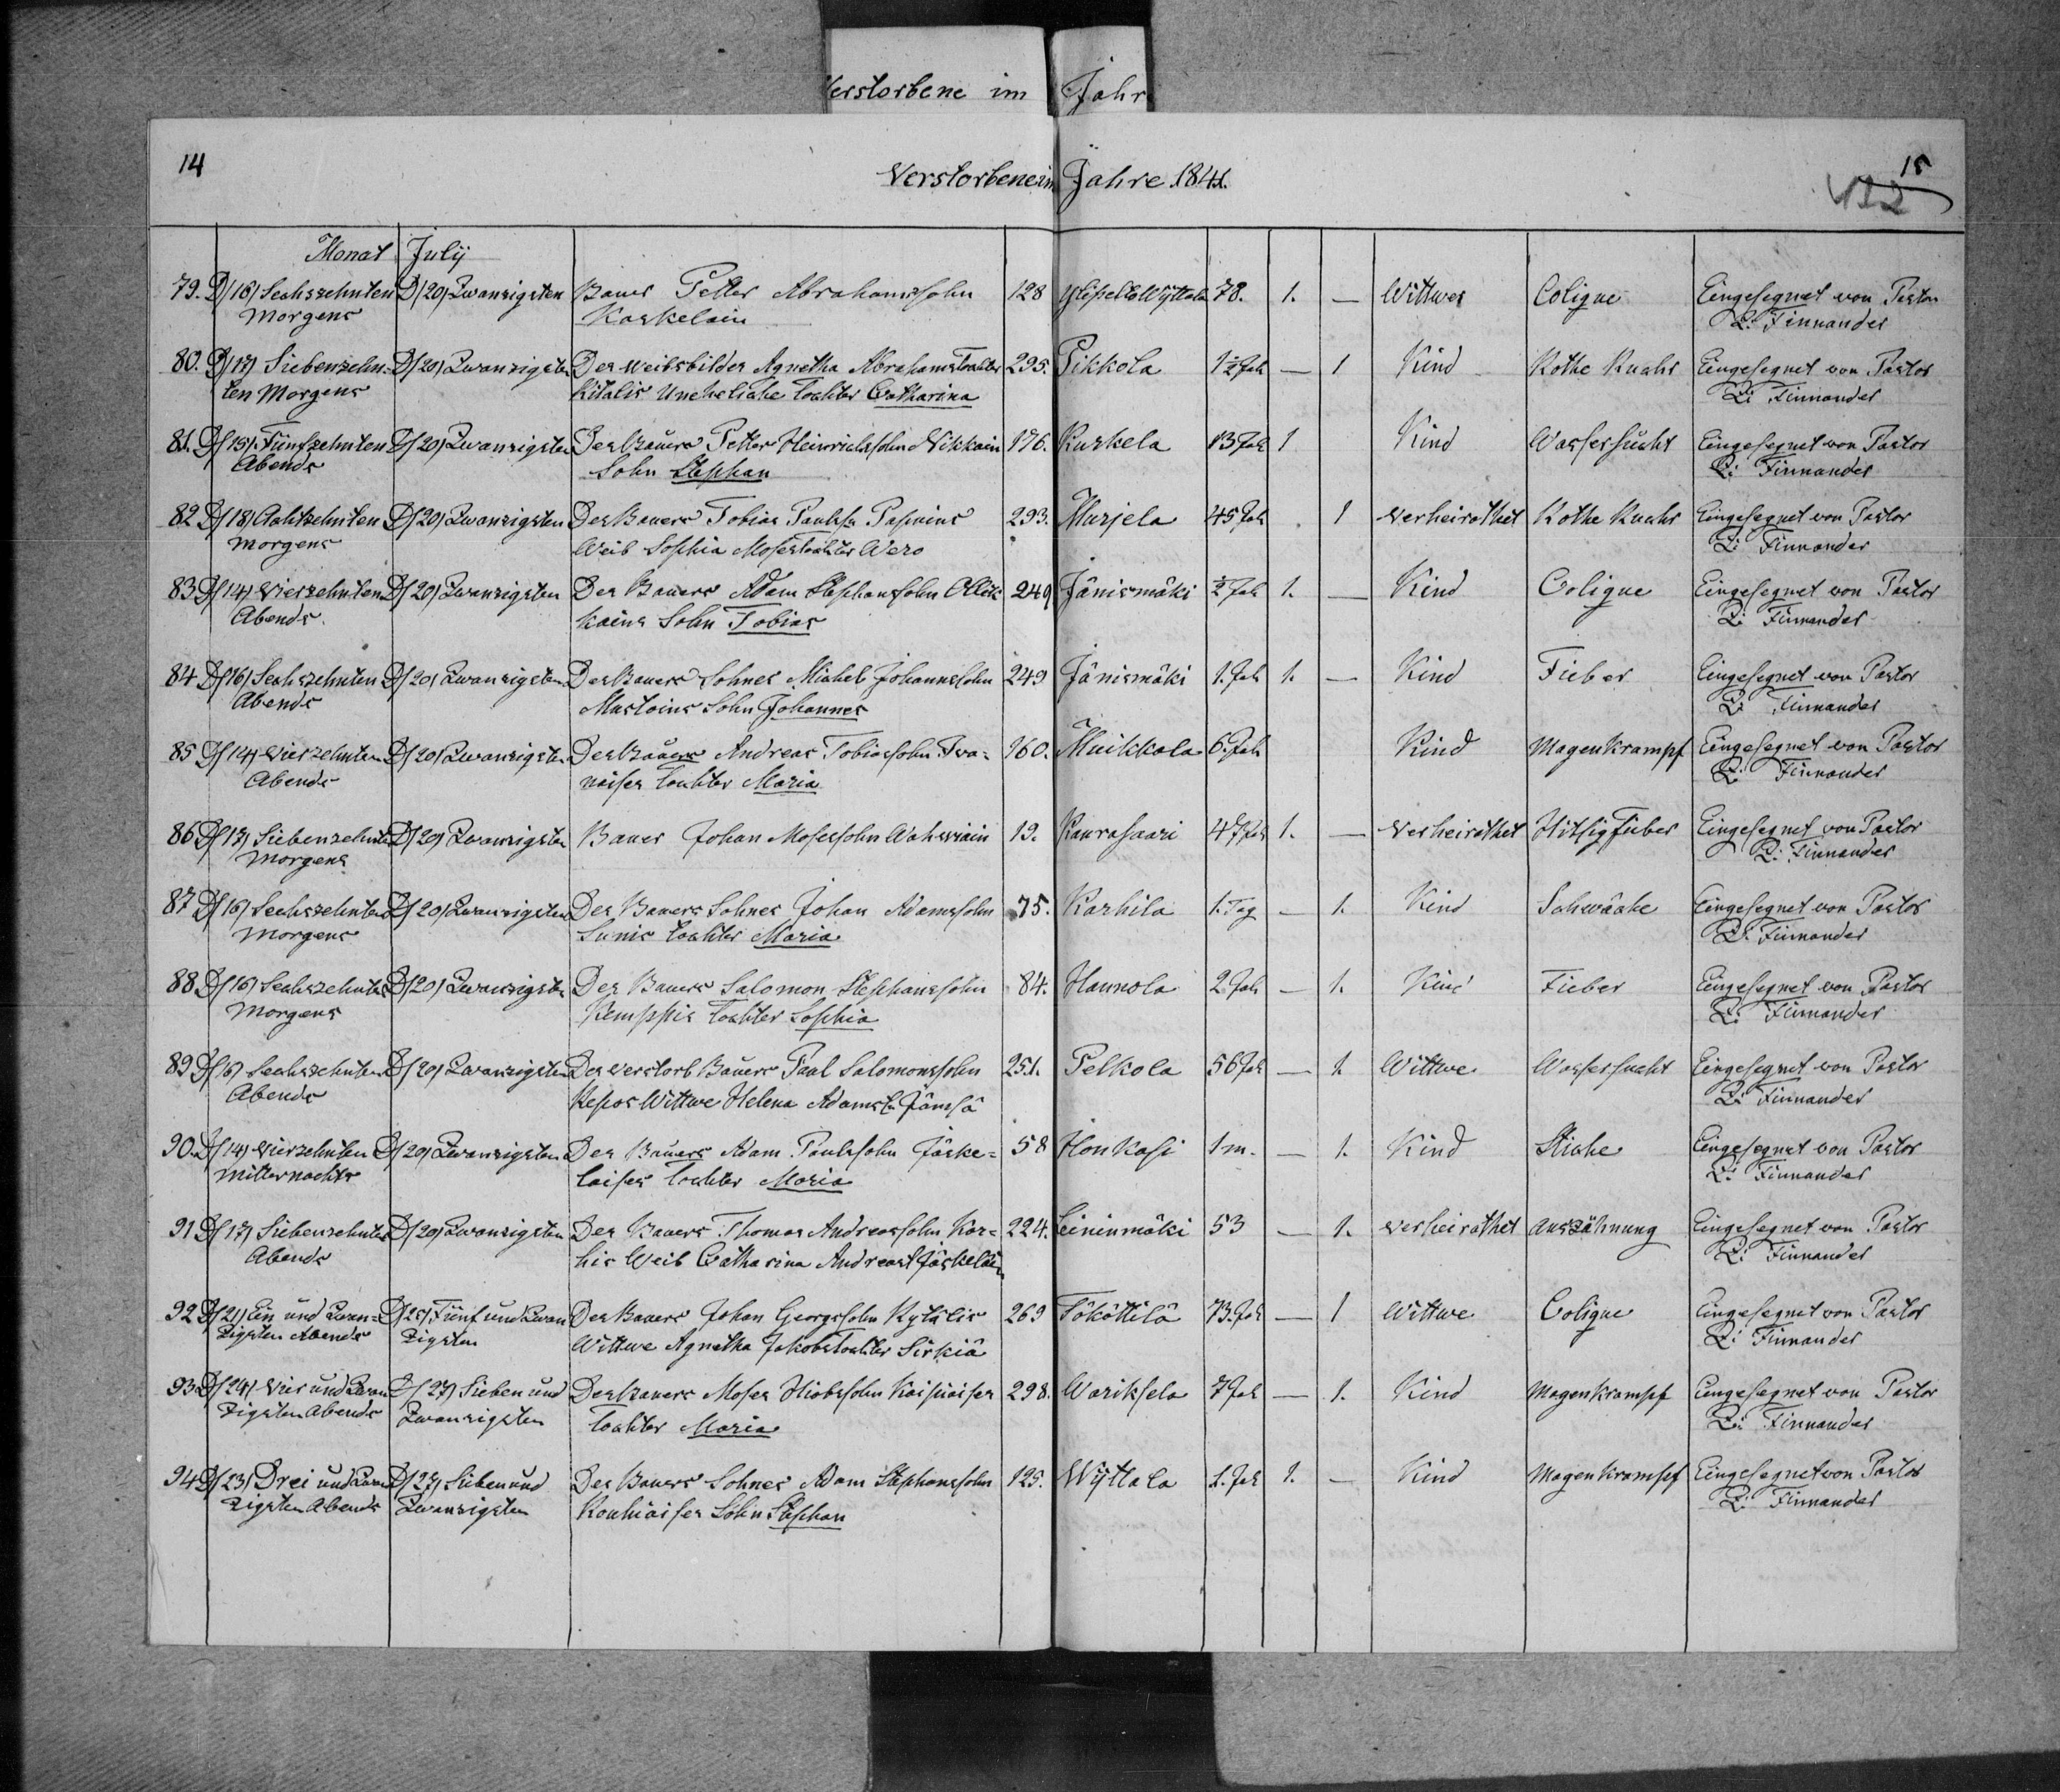 Verstorbene im Jahr
14
Verstorbene im Jahre 1841.
15
422
Monat July
79. D/16/ Sechszehnten D/20/ Zwanzigsten Bauer Petter Abrahamssohn 128 78. 1. — Wittwer Colique Eingesegnet von Pastor
Morgens Koskelain L: Finnander
80. D/17/ Siebenzehn= D/20/ Zwanzigsten Des Weibsbildes Agnetha Abrahamstochter 295. Pikkola 1½ Jah — 1 Kind Rothe Ruhr Eingesegnet von Pastor
ten Morgens Kitalis Uneheliche Tochter Catharina L: Finnander
81. D/15/ Fünfzehnten D/20/ Zwanzigsten Des Bauers Petter Heinrichssohn Nikkain 176. Kuskela 13 Jah 1 Kind Wassersucht Eingesegnet von Pastor
Abends Sohn Stephan L: Finnander
82 D/18/ Achtzehnten D/20/ Zwanzigsten Des Bauers Tobias Paulss. 293. Murjela 45 Jah 1 Verheirathet Rothe Ruhr Eingesegnet von Pastor
Morgens Weib Sophia Mosestochter Wero L: Finnander
83 D/14/ Vierzehnten D/20/ Zwanzigsten Des Bauers Adam Stephanssohn Ollik 249 Jänismäki ½ Jah 1. — Kind Colique Eingesegnet von Pastor
Abends. kains Sohn Tobias L: Finnander
84 D/16/ Sechszehnten D/20/ Zwanzigsten Des Bauers Sohnes Michel Johannssohn 249 Jänismäki 1. Jah 1. — Kind Fieber Eingesegnet von Pastor
Abends Mustoins Sohn Johannes L: Finnander
85 D/14/ Vierzehnten D/20/ Zwanzigsten Des Bauers Andreas Tobiassohn Iwa= 160. Muikkola 6. Jah Kind Magenkrampf Eingesegnet von Pastor
Abends naises Tochter Maria L: Finnander
86 D/17/ Siebenzehnten D/20/ Zwanzigsten Bauer Johan Mosessohn 19. Kaurasaari 47 Jah 1. — Verheirathet Hitsigfieber Eingesegnet von Pastor
Morgens L: Finnander
87 D/16/ Sechszehnten D/20/ Zwanzigsten Des Bauers Sohnes Johan Adamssohn 75. Karhila 1. Tag — 1. Kind Schwäche Eingesegnet von Pastor
Morgens Sunis Tochter Maria L: Finnander
88 D/16/ Sechszehnten D/20/ Zwanzigsten Des Bauers Salomon Stephanssohn 84. Hannola 2 Jah — 1. Kind Fieber Eingesegnet von Pastor
Morgens Kemppis Tochter Sophia L: Finnander
89 D/16/ Sechszehnten D/20/ Zwanzigsten Des verstorb Bauers Paul Salomonssohn 251. Pelkola 56 Jah — 1. Wittwe Wassersucht Eingesegnet von Pastor
Abends Repos Wittwe Helena Adamst. Jämsä L: Finnander
90. D/14/ Vierzehnten D/20/ Zwanzigsten Des Bauers Adam Paulssohn Jäske= 58 Honkasi 1 m. — 1. Kind Stiche Eingesegnet von Pastor
Mitternachts laises Tochter Maria L: Finnander
91 D/17/ Siebenzehnten D/20/ Zwanzigsten Des Bauers Thomas Andreassohn Kar= 224. Leininmäki 53 — 1. Verheirathet Auszähnung Eingesegnet von Pastor
Abends his Weib Catharina Andreast Jäskeläin L: Finnander
92 D/21/ Ein und Zwan= D/25/ Fünf und Zwan Des Bauers Johan Georgssohn Kytälis 269 Tököttilä 73. Jah — 1 Wittwe Colique Eingesegnet von Pastor
zigsten Abends zigsten Wittwe Agnetha Jakobstochter Sirkiä L: Finnander
93 D/24/ Vier und Zwan D/27/ Sieben und Des Bauers Moses Hiobssohn 298. Wariksela 7 Jah — 1. Kind Magenkrampf Eingesegnet von Pastor
zigsten Abends Zwanzigsten Tochter Maria L: Finnander
94 D/23/ Drei und Zwan D/27/ Sieben und Des Bauers Sohnes Adam Stephanssohn 125. Wÿttala 1. Jah 1. — Kind Magenkrampf Eingesegnet von Pastor
zigsten Abends Zwanzigsten Kouhiaises Sohn Stephan L: Finnander